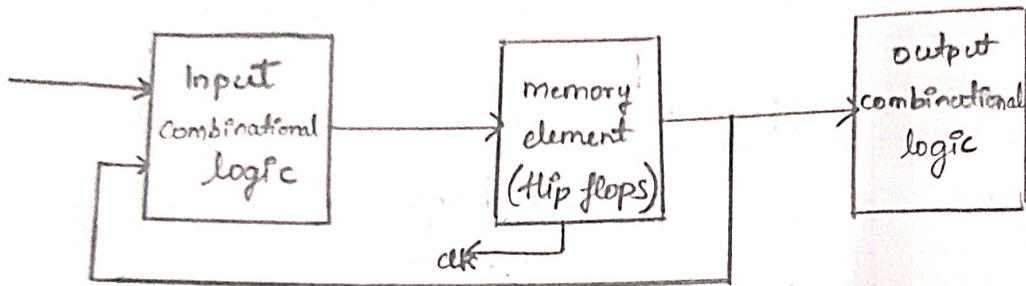 Input
combinational
logic
memory
element
(flip flops)
clk
output
combinational
logic